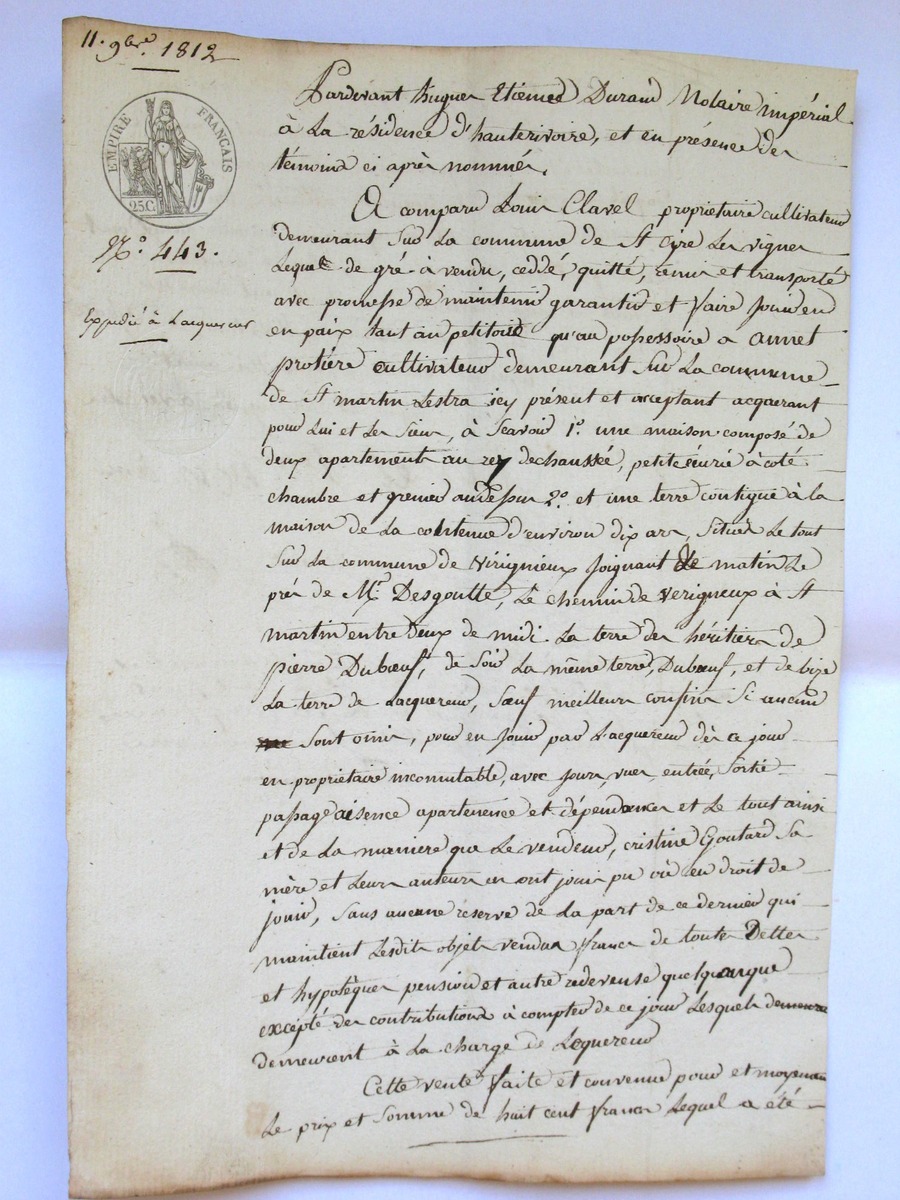 11. 9bre. 1812
EMPIRE FRANÇAIS
25C.
N°. 443.
Expédié à Lacquereur
Pardevant hugues Etienne Durand Notaire impérial
à La résidence d'hauterivoire, et en présence des
témoins ci après nommés.
A comparu Louis Clavel propriétaire cultivateur
demeurant Sur La commune de St Cire Les vignes
Lequel de gré à vendu, ceddé, quitté, remis et transporté
avec promesse de maintenir garantir et faire jouir en
en paix tant au petitoire qu'au possessoire a annet
protière cultivateur demeurant Sur La commune
de St martin Lestra icy présent et acceptant acquerant
pour Lui et Les Siens, à Scavoir 1°. une maison composé de
deux apartements au rey dechaussée, petite écurie à coté
chambre et grenier audessus 2°. et une terre contigue à la
maison de La contenue d'environ dix ars, Situés Le tout
Sur La commune de virigneux joignant de matin Le
prés de Mr. Desgoutte, Le chemin de verigneux à St
martin entre deux de midi La terre des héritiers de
pierre Dubœuf, de Soir La même terre, Dubœuf, et de bize
La terre de Lacquereur, Sauf meilleurs confins Si aucuns
Sont omis, pour en jouir par Lacquereur dès ce jour
en propriétaire incommutable, avec jours, vues, entrée, Sortie
passage aisence apartenence et dépendances et Le tout ainsi
et de La maniere que Le vendeur, cristine Goutard Sa
mère et Leurs auteurs en ont joui pu où eu droit de
jouir, Sans aucune réserve de La part de ce dernier qui
maintient Lesdits objets vendus francs de toutes Dettes
et hypotèques pension et autre redevense quelquonque
excépté des contributions à compter de ce jour Lesquels demeure
demeurent à La charge de Lequereur
Cette vente faite et convenue pour et moyenant
Le prix et Somme de huit cent francs Lequel a été